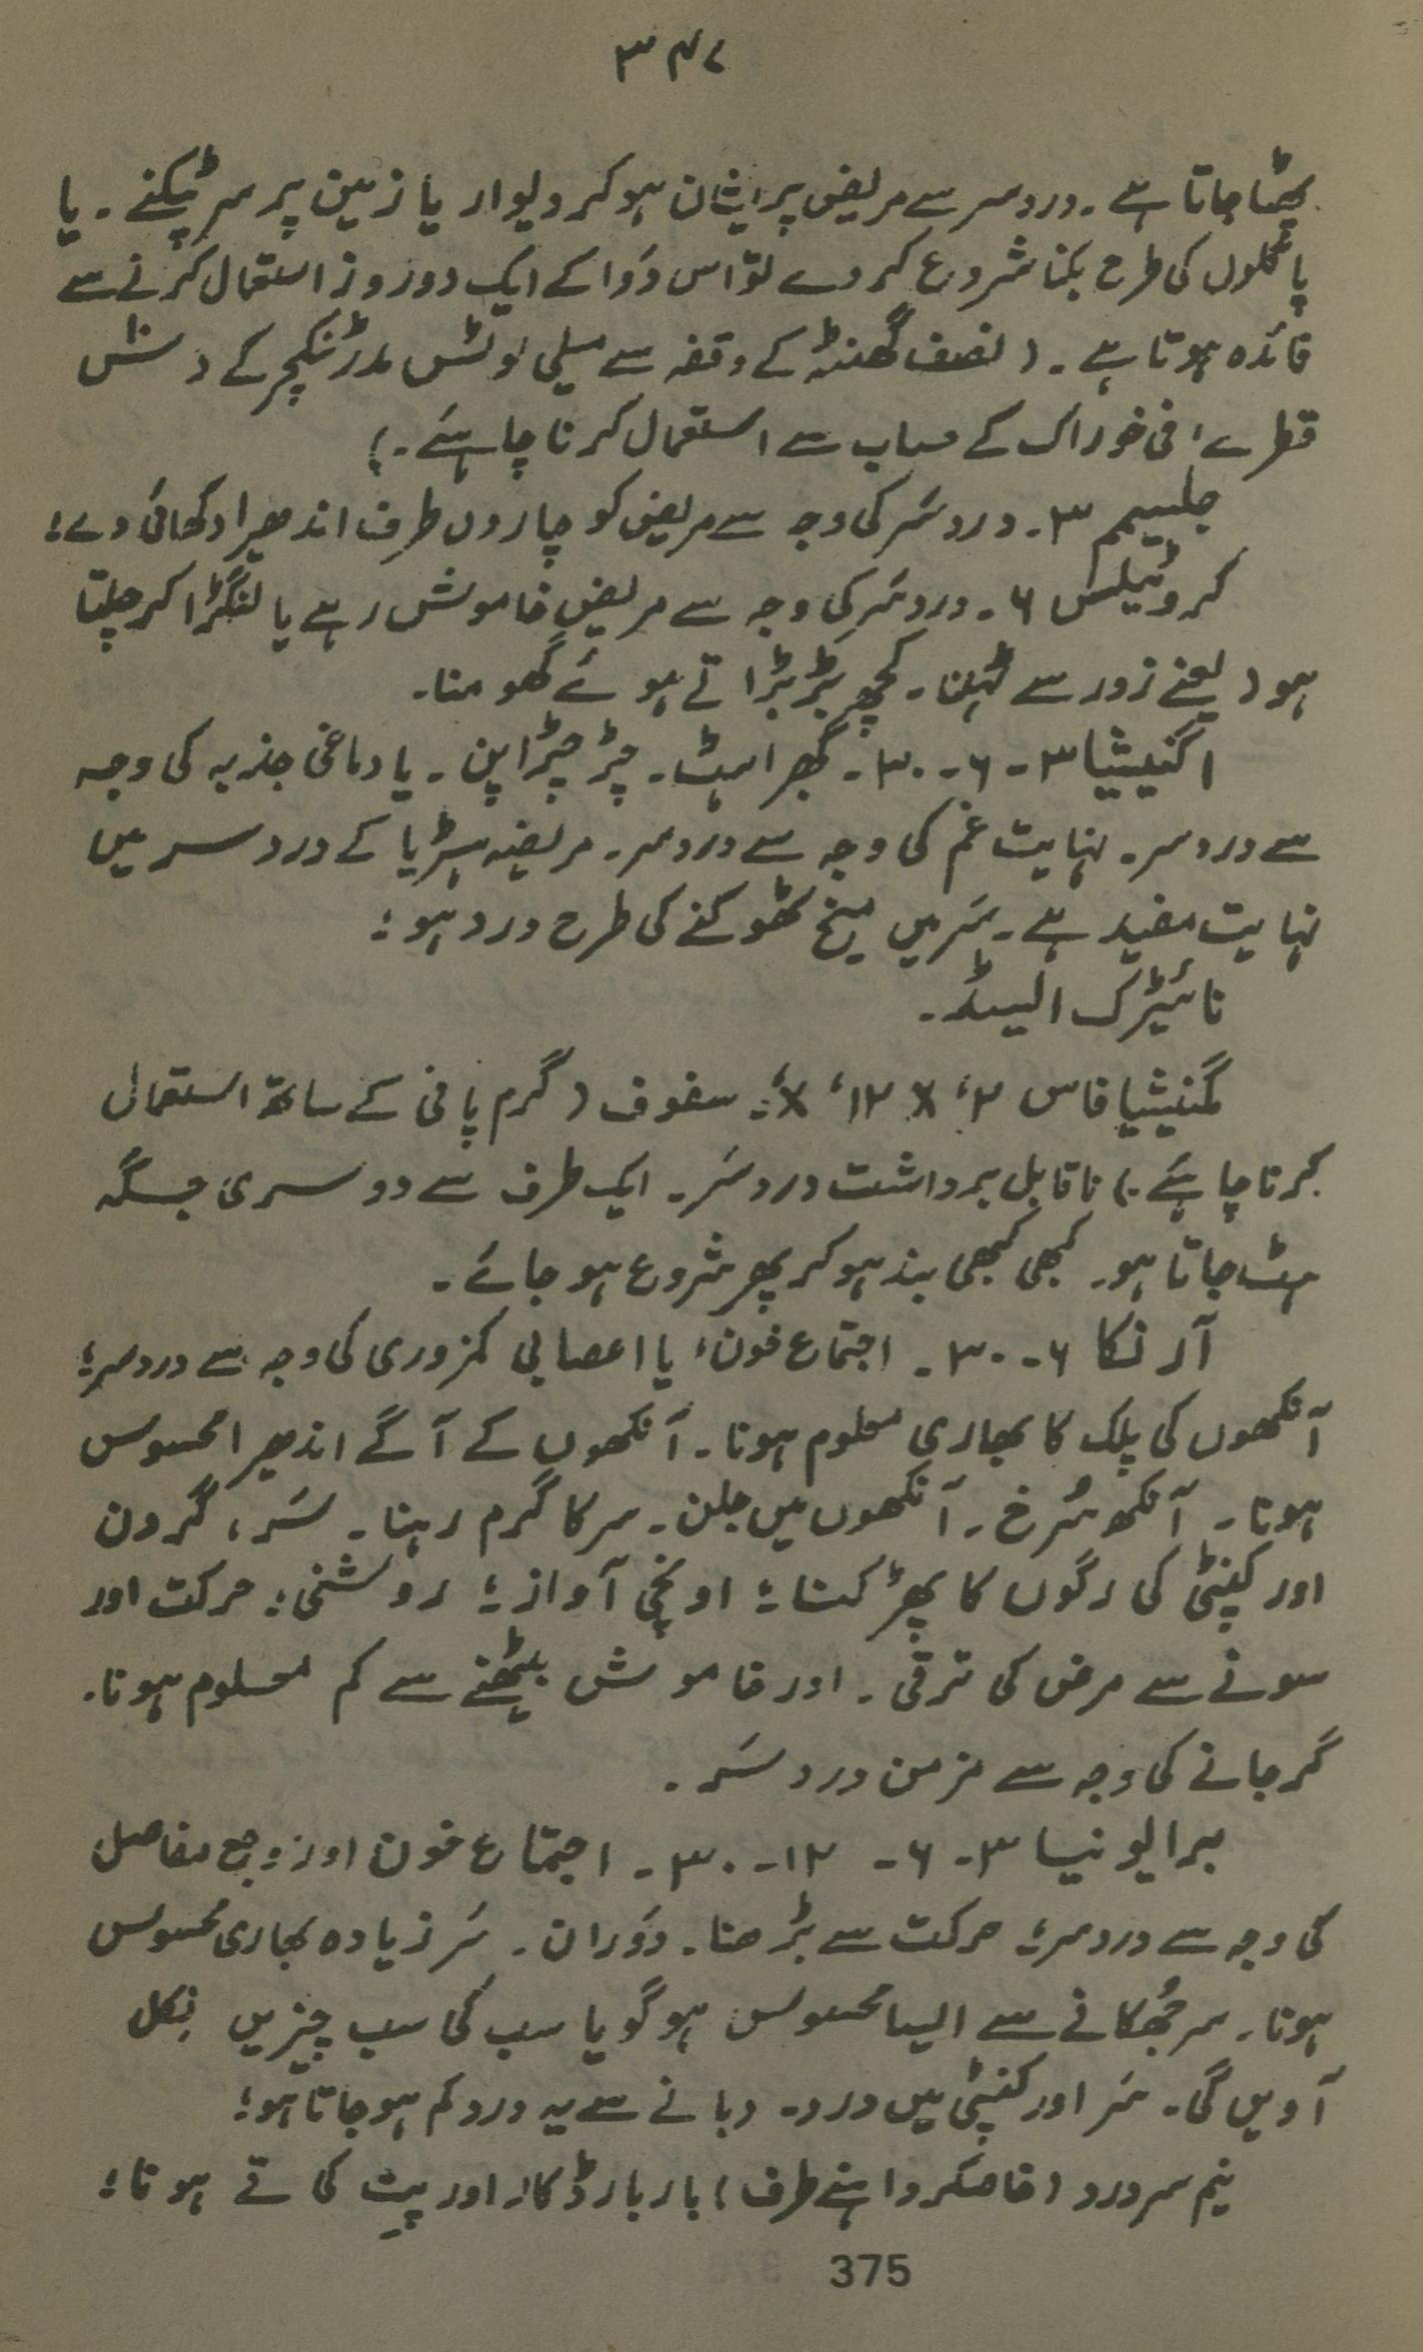 ۳۴۷
پھٹا جاتا ہے۔ دردسر سے مریض پریشان ہوکر دیوار یا زمین پر سر ٹپکنے۔ یا
پاگلوں کی طرح بکنا شروع کر دے تو اس دَوا کے ایک دو روز استعمال کرنے سے
فائدہ ہوتا ہے۔ (نصف گھنٹہ کے وقفہ سے میلی لوٹس مدر ٹنکچر کے دس
قطرے فی خوراک کے حساب سے استعمال کرنا چاہئے۔)
جلسیم ۳۔ دردسَر کی وجہ سے مریض کو چاروں طرف اندھیرا دکھائی دے؛
کروٹیلس ۶۔ دردسَر کی وجہ سے مریض خاموش رہے یا لنگڑا کر چلتا
ہو (یعنے زور سے ٹہلنا۔ کچھ بڑبڑاتے ہوئے گھومنا۔
اگنیشیا ۳۔۶۔۳۰۔ گھبراہٹ۔ چڑچڑاپن۔ یا دماغی جذبہ کی وجہ
سے دردسر۔ نہایت غم کی وجہ سے دردسر۔ مریضہ ہسٹریا کے درد سر میں
نہایت مفید ہے۔ سَر میں میخ ٹھوکنے کی طرح درد ہو؛
نائیٹرک ایسڈ۔
مگنیشیا فاس ۲x، ۱۲x؛ سفوف (گرم پانی کے ساتھ استعمال
کرنا چاہئے۔) ناقابل برداشت دردسَر۔ ایک طرف سے دوسری جگہ
ہٹ جاتا ہو۔ کبھی کبھی بند ہوکر پھر شروع ہو جائے۔
آرنکا ۶۔۳۰۔ اجتماع خون، یا اعصابی کمزوری کی وجہ سے دردسر؛
آنکھوں کی پلک کا بھاری معلوم ہونا۔ آنکھوں کے آگے اندھیرا محسوس
ہونا۔ آنکھ سُرخ۔ آنکھوں میں جلن۔ سر کا گرم رہنا۔ سَر، گردن
اور کنپٹی کی رگوں کا پھڑکنا؛ اونچی آواز؛ روشنی؛ حرکت اور
سونے سے مرض کی ترقی۔ اور خاموش بیٹھنے سے کم معلوم ہونا۔
گر جانے کی وجہ سے مزمن درد سَر۔
برایونیا ۳۔۶۔ ۱۲۔۳۰۔ اجتماع خون اور وجع مفاصل
کی وجہ سے دردسر؛ حرکت سے بڑھنا۔ دَوران۔ سَر زیادہ بھاری محسوس
ہونا۔ سر جُھکانے سے ایسا محسوس ہو گویا سب کی سب چیزیں نِکل
آویں گی۔ سَر اور کنپٹی میں درد۔ دبانے سے یہ درد کم ہو جاتا ہو؛
نیم سر درد (خاصکر داہنے طرف) بار بار ڈکار اور پِت کی قے ہونا؛
375